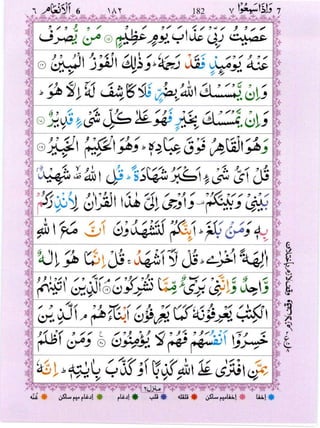 ٦ اَلْاَنْعَام 6 ١٨٢ 182 ٧ وَاِذَا سَمِعُوْا 7
عَصَيْتُ رَبِّيْ عَذَابَ يَوْمٍ عَظِيْمٍ ۝ مَنْ يُّصْرَفْ
عَنْهُ يَوْمَىِٕذٍ فَقَدْ رَحِمَهٗ ؕ وَذٰلِكَ الْفَوْزُ الْمُبِيْنُ ۝
وَاِنْ يَّمْسَسْكَ اللّٰهُ بِضُرٍّ فَلَا كَاشِفَ لَهٗۤ اِلَّا هُوَ ؕ
وَاِنْ يَّمْسَسْكَ بِخَيْرٍ فَهُوَ عَلٰى كُلِّ شَيْءٍ قَدِيْرٌ ۝
وَهُوَ الْقَاهِرُ فَوْقَ عِبَادِهٖ ؕ وَهُوَ الْحَكِيْمُ الْخَبِيْرُ ۝
قُلْ اَيُّ شَيْءٍ اَكْبَرُ شَهَادَةً ؕ قُلِ اللّٰهُ ۙ شَهِيْدٌۢ
بَيْنِيْ وَبَيْنَكُمْ ۫ وَاُوْحِيَ اِلَيَّ هٰذَا الْقُرْاٰنُ لِاُنْذِرَكُمْ
بِهٖ وَمَنْۢ بَلَغَ ؕ اَىِٕنَّكُمْ لَتَشْهَدُوْنَ اَنَّ مَعَ اللّٰهِ
اٰلِهَةً اُخْرٰى ؕ قُلْ لَّاۤ اَشْهَدُ ۚ قُلْ اِنَّمَا هُوَ اِلٰهٌ
وَّاحِدٌ وَّاِنَّنِيْ بَرِيْٓءٌ مِّمَّا تُشْرِكُوْنَ ۘ اَلَّذِيْنَ اٰتَيْنٰهُمُ
الْكِتٰبَ يَعْرِفُوْنَهٗ كَمَا يَعْرِفُوْنَ اَبْنَآءَهُمْ ۘ اَلَّذِيْنَ
خَسِرُوْۤا اَنْفُسَهُمْ فَهُمْ لَا يُؤْمِنُوْنَ ۝ وَمَنْ اَظْلَمُ
مِمَّنِ افْتَرٰى عَلَى اللّٰهِ كَذِبًا اَوْ كَذَّبَ بِاٰيٰتِهٖ ؕ اِنَّهٗ
منزل ٢
اخفا اخفا ميم ساكن قلقله قلب ادغام ادغام ميم ساكن غنّه